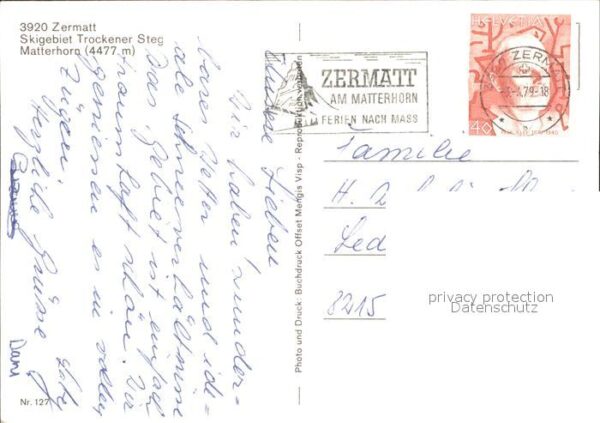 3920 Zermatt
Skigebiet Trockener Steg
Matterhorn (4477 m)
Meine Lieben,
Wir haben wunder-
bares Wetter und ide-
ale Schneeverhältnisse
Das Gebiet ist einfach
traumhaft schön. Wir
geniessen es in vollen
Zügen.
Herzliche Grüsse
Nr. 127
Photo und Druck: Buchdruck Offset Mengis Visp - Reproduktion verboten
ZERMATT
AM MATTERHORN
FERIEN NACH MASS
HELVETIA
40
3920 ZERMATT
79-18
Familie
H.
8215
privacy protection
Datenschutz